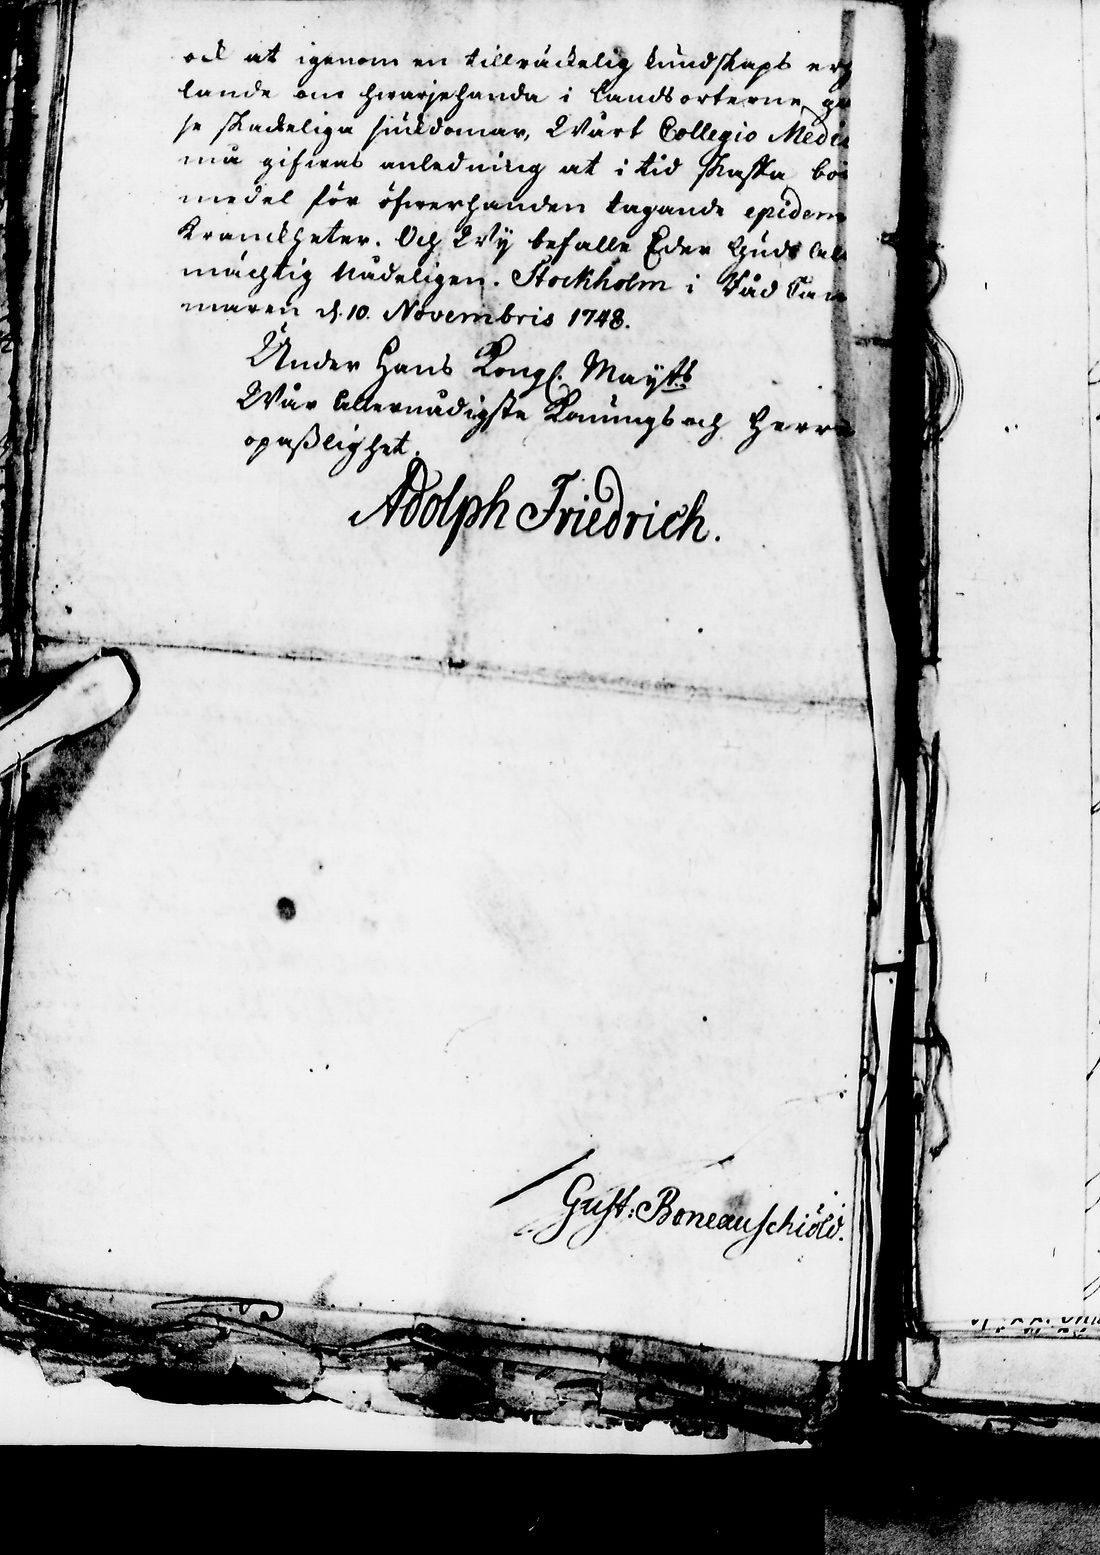 ock at igenom en tillräckelig kundskaps erh
lande om hwarjehanda i landsorterne gr
se skadeliga siukdomar, Wårt Collegio Medic
må gifwas anledning at i tid skaffa bot
medel för öfwerhanden tagande epidem
Kranckheter. Och Wy befalle Eder Gud All
mächtig Nådeligen. Stockholm i Råd Cam
maren d. 10. Novembris 1748.
Under Hans Kongl. Mayts
Wår Allernådigste Konungs och Herre
opasslighet.
Adolph Friedrich.
Gust: Boneauschiöld.